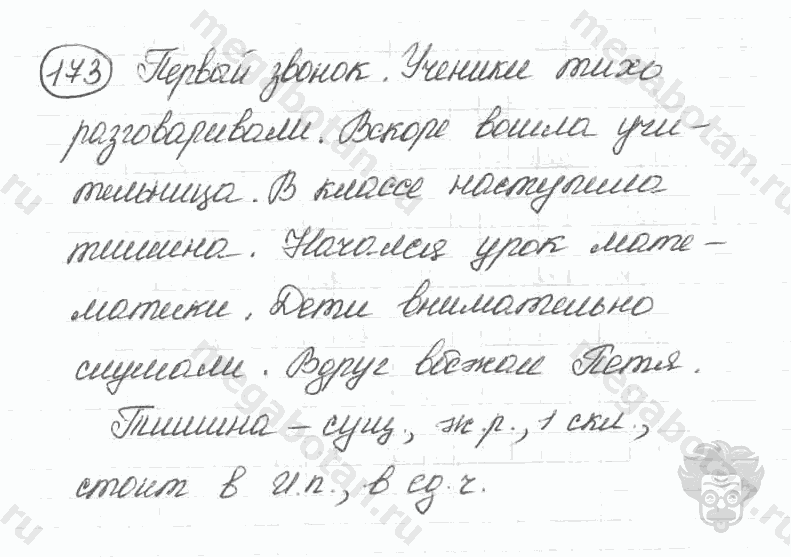 173 Первый звонок. Ученики тихо
разговаривали. Вскоре вошла учи-
тельница. В классе наступила
тишина. Начался урок мате-
матики. Дети внимательно
слушали. Вдруг вбежал Петя.
Тишина – сущ., ж.р., 1 скл.,
стоит в И.п., в ед.ч.
megabotan.ru
megabotan.ru
megabotan.ru
megabotan.ru